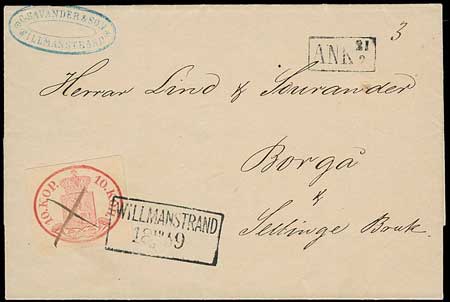 C. SAVANDER & SON
WILLMANSTRAND
3
ANK 21
2
Herrar Lind & Sourander
Borgå
&
Sellinge Bruk.
10. KOP. 10. KOP.
WILLMANSTRAND